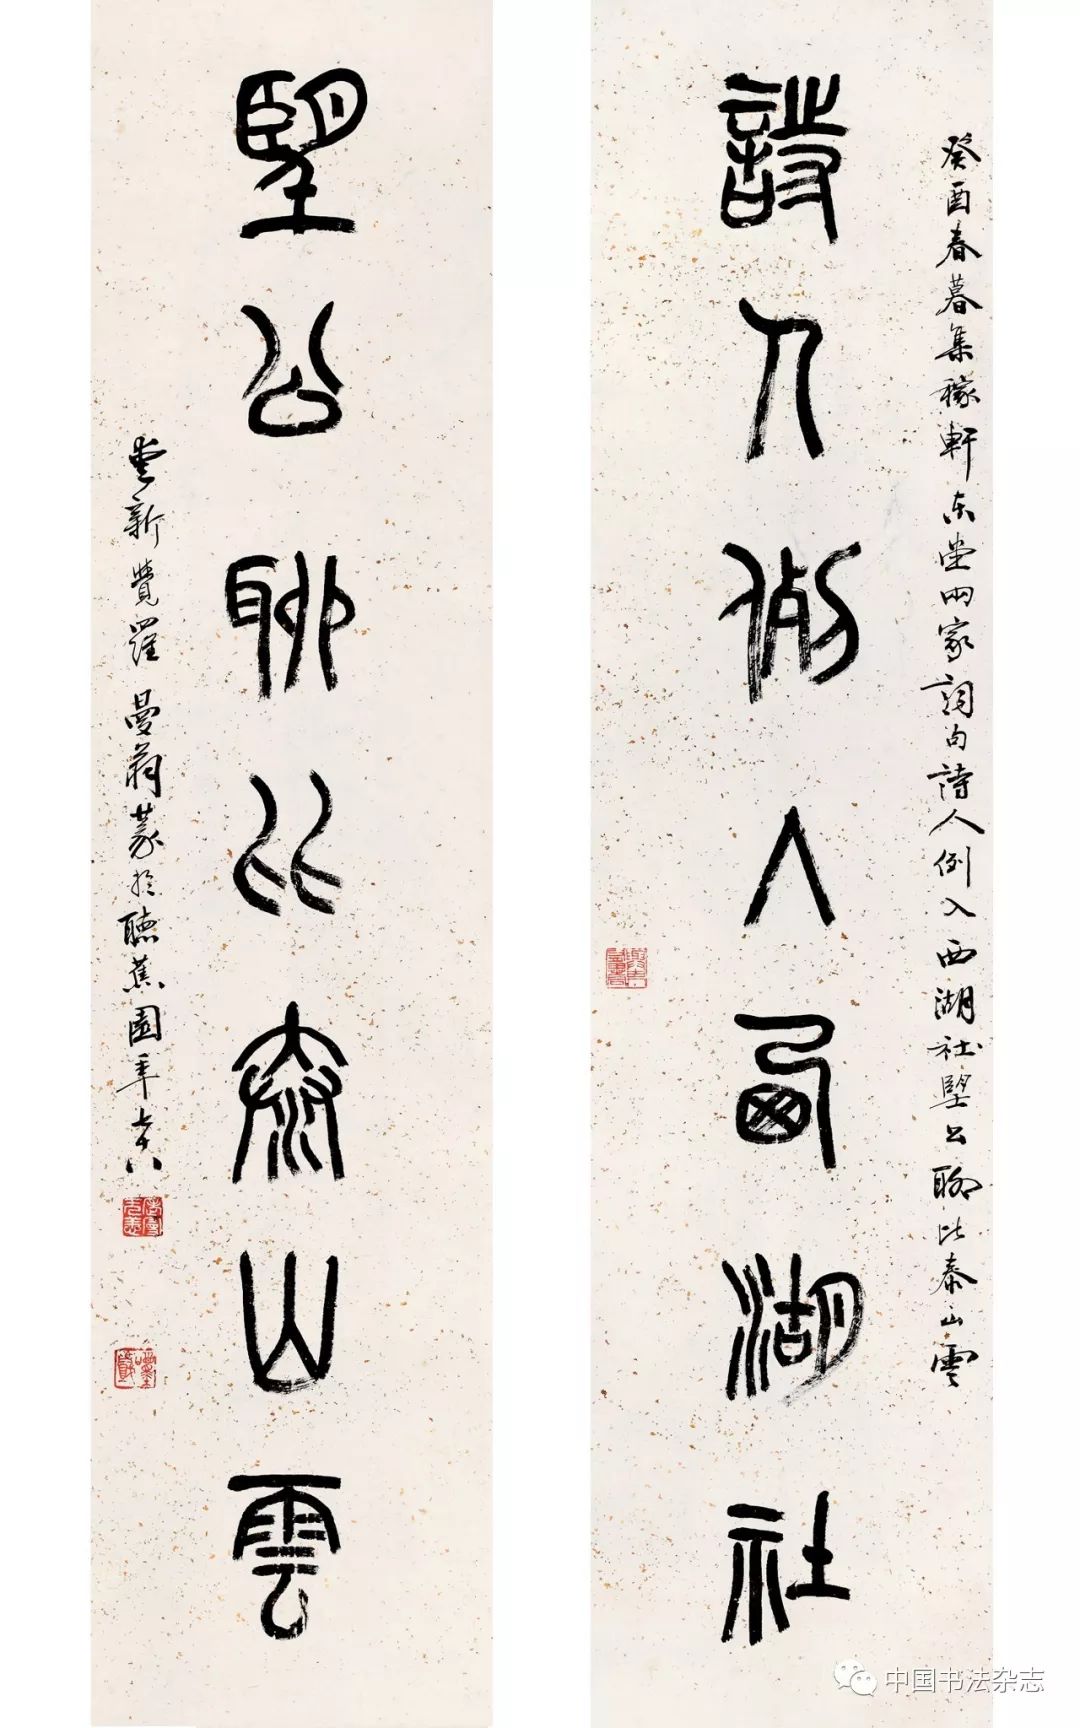 癸酉春暮集稼軒東堂兩家詞句詩人例入西湖社望公聊比泰山雲
詩人例入西湖社
望公聊比泰山雲
愛新覺羅曼翁篆於聽蕉園年
中国书法杂志